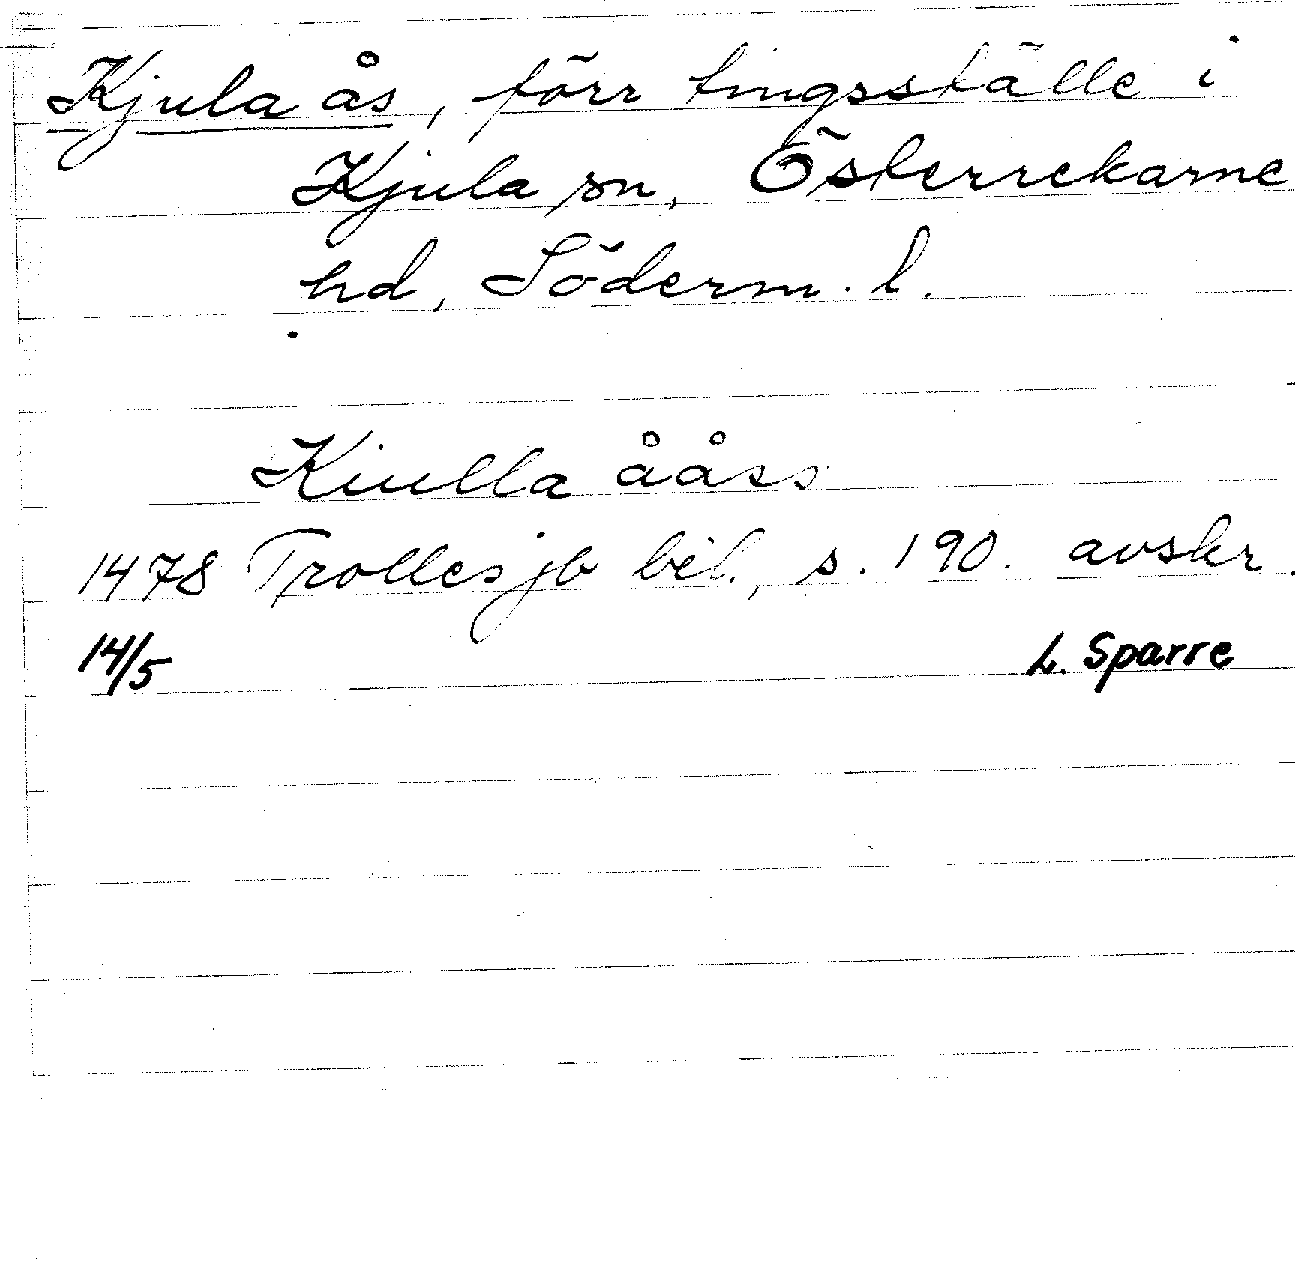 Kjula ås, förr tingsställe i
Kjula sn, Österrekarne
hd, Söderm. l.
Kiulla ååss
1478 Trolles jb bil., s. 190. avskr.
14/5 L. Sparre